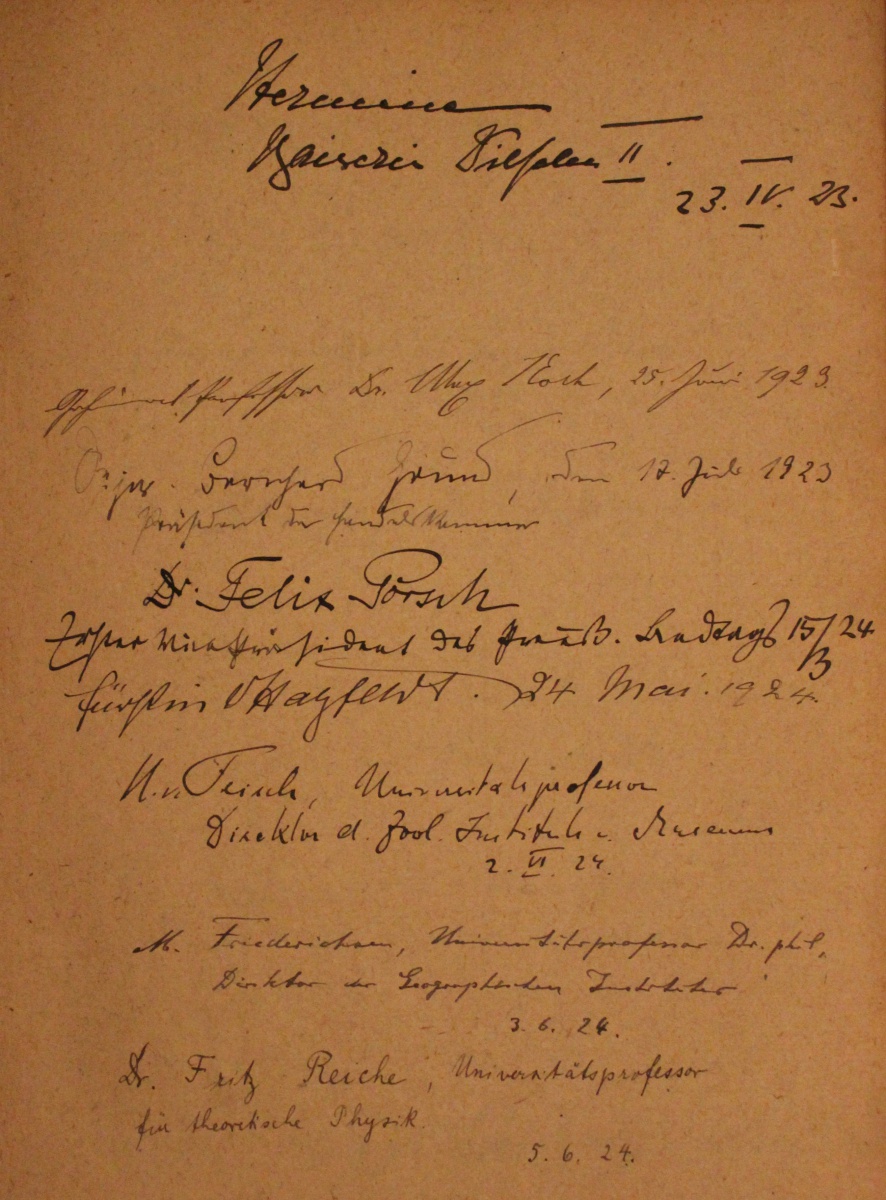 Hermine
Kaiserin Wilhelm II.
23. IV. 23.
Professor Dr. Max Koch, 25. Juni 1923
Bernhard Grund, den 17. Juli 1923
Präsident der Handelskammer
Dr. Felix Porsch
Erster Vicepräsident des Preuß. Landtags 15/3 24
Fürstin v Hatzfeldt. 24 Mai. 1924.
Universitätsprofessor
Direktor d. Zool. Instituts u. Museums
2. VI. 24.
M. Friederichsen, Universitätsprofessor Dr. phil,
Direktor des Geographischen Institutes
3. 6. 24.
Dr. Fritz Reiche, Universitätsprofessor
für theoretische Physik.
5. 6. 24.